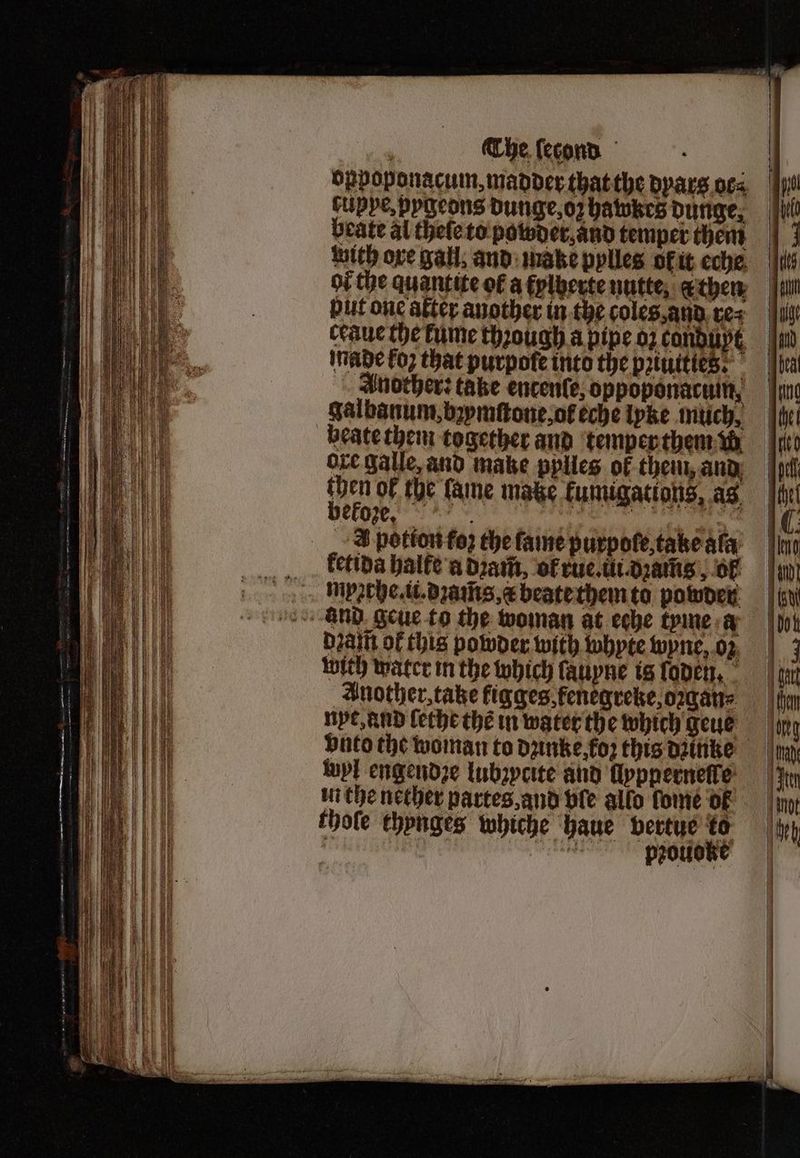 The second
oppoponacum, madder that the dyars oc⸗
cuppe, pygeons dunge, oꝛ hawkes dunge,
beate al these to powder, and temper them
with oxe gall, and make pylles of it eche
of the quantite of a fylberte nutte, & then
put one after another in the coles, and re⸗
ceaue the fume thꝛough a pipe oꝛ condupt
made foꝛ that purpose into the pꝛiuities.
Another: take encense, oppoponacum,
galbanum, bꝛymstone, of eche lyke much,
beate them together and temper them wͭ
oxe galle, and make pylles of them, and
then of the same make fumigations, as
befoꝛe,
A potion foꝛ the same purpose, take asa
fetida halfe a dꝛam̄, of rue .iii. dꝛam̄s, of
myꝛrhe .ii. dꝛam̄s, & beate them to powder
and geue to the woman at eche tyme a
dꝛam̄ of this powder with whyte wyne, oꝛ
with water in the which sauyne is soden,
Another, take figges, fenegreke, oꝛgan⸗
nye, and sethe thē in water the which geue
vnto the woman to dꝛinke, foꝛ this dꝛinke
wyl engendꝛe lubꝛycite and slyppernesse
in the nether partes, and vse also some of
those thynges whiche haue vertue to
pꝛouoke